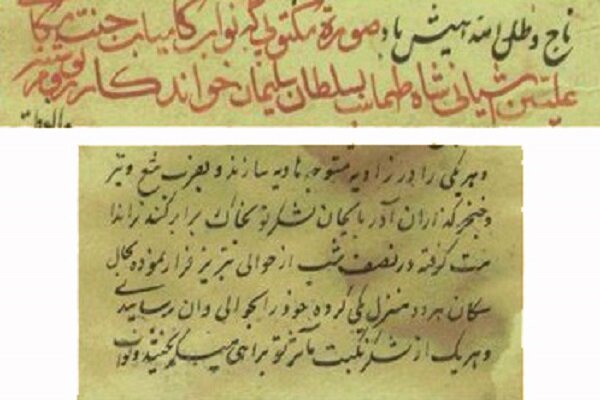 تاج و ظل امنه همیش باد صورة مکتوبی که نواب کامیاب جنت مکا
علیین آشیانی شاه طهماسب بسلطان سلیمان خواندکار روم
و هر یکی را در زاویه متوجه هاویه سازند و بضرب تیغ و تبر
و خنجر گذاران آذربایجان لشکر تو بخاک برابر کنند
گرفته در نصف شب از حوالی تبریز فرار نموده بحال
سکان هر دو منزل یکی کروه خود را بحوالی وان رسانیدی
و هر یک از لشکر نکبت مآثر تو براهی میگریختند